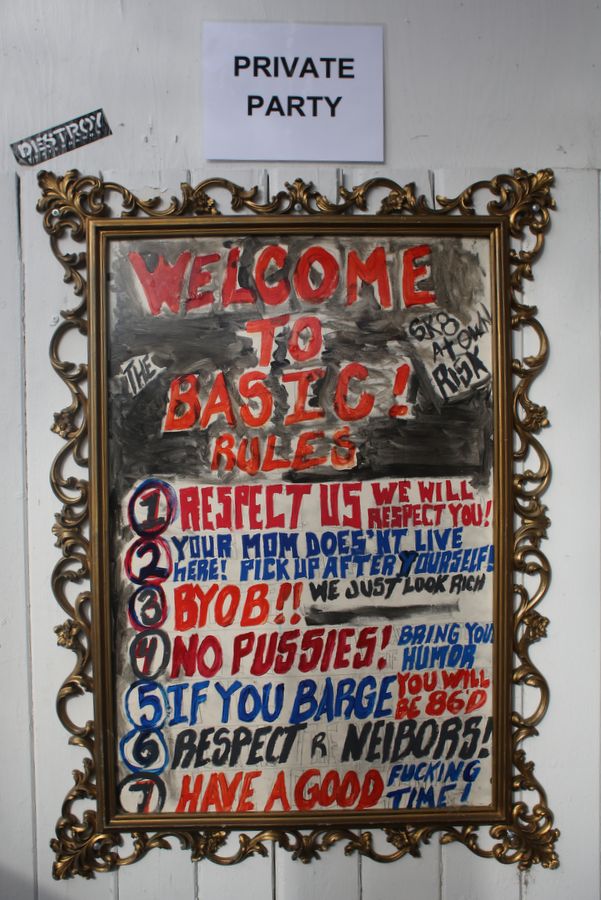 PRIVATE
PARTY
DESTROY
WELCOME
TO
THE
SK8
AT OWN
RISK
BASIC!
RULES
1 RESPECT US WE WILL
RESPECT YOU!
2 YOUR MOM DOES'NT LIVE
HERE! PICK UP AFTER YOURSELF!
3 BYOB!! WE JUST LOOK RICH
4 NO PUSSIES! BRING YOUR
HUMOR
5 IF YOU BARGE YOU WILL
BE 86'D
6 RESPECT R NEIBORS!
7 HAVE A GOOD FUCKING
TIME!